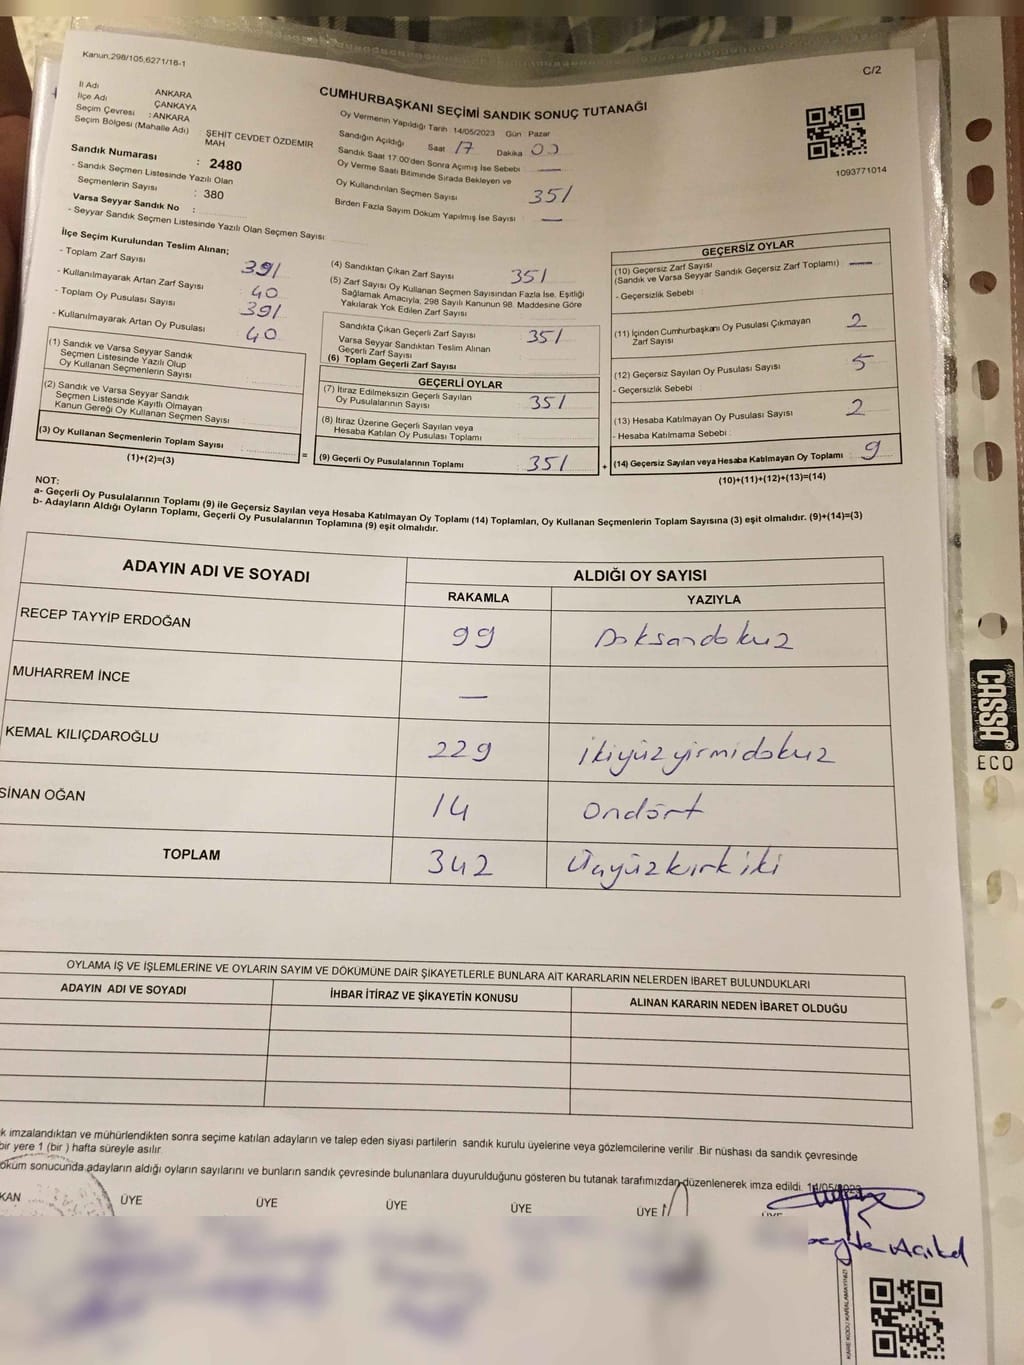 Kanun.298/105,6271/18-1
C/2
CUMHURBAŞKANI SEÇİMİ SANDIK SONUÇ TUTANAĞI
İl Adı ANKARA
İlçe Adı ÇANKAYA
Seçim Çevresi : ANKARA
Seçim Bölgesi (Mahalle Adı) : ŞEHİT CEVDET ÖZDEMİR MAH
Sandık Numarası : 2480
- Sandık Seçmen Listesinde Yazılı Olan
Seçmenlerin Sayısı : 380
Varsa Seyyar Sandık No :
- Seyyar Sandık Seçmen Listesinde Yazılı Olan Seçmen Sayısı:
Oy Vermenin Yapıldığı Tarih 14/05/2023 Gün Pazar
Sandığın Açıldığı Saat 17 Dakika 00
Sandık Saat 17.00'den Sonra Açımış İse Sebebi —
Oy Verme Saati Bitiminde Sırada Bekleyen ve
Oy Kullandırılan Seçmen Sayısı 351
Birden Fazla Sayım Döküm Yapılmış İse Sayısı : —
1093771014
İlçe Seçim Kurulundan Teslim Alınan;
- Toplam Zarf Sayısı 391
- Kullanılmayarak Artan Zarf Sayısı 40
- Toplam Oy Pusulası Sayısı 391
- Kullanılmayarak Artan Oy Pusulası 40
(1) Sandık ve Varsa Seyyar Sandık
Seçmen Listesinde Yazılı Olup
Oy Kullanan Seçmenlerin Sayısı :
(2) Sandık ve Varsa Seyyar Sandık
Seçmen Listesinde Kayıtlı Olmayan
Kanun Gereği Oy Kullanan Seçmen Sayısı :
(3) Oy Kullanan Seçmenlerin Toplam Sayısı :
(1)+(2)=(3)
(4) Sandıktan Çıkan Zarf Sayısı 351
(5) Zarf Sayısı Oy Kullanan Seçmen Sayısından Fazla İse, Eşitliği
Sağlamak Amacıyla, 298 Sayılı Kanunun 98. Maddesine Göre
Yakılarak Yok Edilen Zarf Sayısı
Sandıkta Çıkan Geçerli Zarf Sayısı 351
Varsa Seyyar Sandıktan Teslim Alınan
Geçerli Zarf Sayısı
(6) Toplam Geçerli Zarf Sayısı
GEÇERLİ OYLAR
(7) İtiraz Edilmeksizin Geçerli Sayılan
Oy Pusulalarının Sayısı 351
(8) İtiraz Üzerine Geçerli Sayılan veya
Hesaba Katılan Oy Pusulası Toplamı
= (9) Geçerli Oy Pusulalarının Toplamı 351
GEÇERSİZ OYLAR
(10) Geçersiz Zarf Sayısı
(Sandık ve Varsa Seyyar Sandık Geçersiz Zarf Toplamı) —
- Geçersizlik Sebebi :
(11) İçinden Cumhurbaşkanı Oy Pusulası Çıkmayan
Zarf Sayısı 2
(12) Geçersiz Sayılan Oy Pusulası Sayısı 5
- Geçersizlik Sebebi :
(13) Hesaba Katılmayan Oy Pusulası Sayısı 2
- Hesaba Katılmama Sebebi :
+ (14) Geçersiz Sayılan veya Hesaba Katılmayan Oy Toplamı : 9
(10)+(11)+(12)+(13)=(14)
NOT:
a- Geçerli Oy Pusulalarının Toplamı (9) ile Geçersiz Sayılan veya Hesaba Katılmayan Oy Toplamı (14) Toplamları, Oy Kullanan Seçmenlerin Toplam Sayısına (3) eşit olmalıdır. (9)+(14)=(3)
b- Adayların Aldığı Oyların Toplamı, Geçerli Oy Pusulalarının Toplamına (9) eşit olmalıdır.
ADAYIN ADI VE SOYADI ALDIĞI OY SAYISI
RAKAMLA YAZIYLA
RECEP TAYYİP ERDOĞAN 99 Doksandokuz
MUHARREM İNCE —
KEMAL KILIÇDAROĞLU 229 ikiyüzyirmidokuz
SİNAN OĞAN 14 ondört
TOPLAM 342 Üçyüzkırkiki
OYLAMA İŞ VE İŞLEMLERİNE VE OYLARIN SAYIM VE DÖKÜMÜNE DAİR ŞİKAYETLERLE BUNLARA AİT KARARLARIN NELERDEN İBARET BULUNDUKLARI
ADAYIN ADI VE SOYADI İHBAR İTİRAZ VE ŞİKAYETİN KONUSU ALINAN KARARIN NEDEN İBARET OLDUĞU
k imzalandıktan ve mühürlendikten sonra seçime katılan adayların ve talep eden siyasi partilerin sandık kurulu üyelerine veya gözlemcilerine verilir. Bir nüshası da sandık çevresinde
bir yere 1 (bir ) hafta süreyle asılır.
öküm sonucunda adayların aldığı oyların sayılarını ve bunların sandık çevresinde bulunanlara duyurulduğunu gösteren bu tutanak tarafımızdan düzenlenerek imza edildi. 14/05/2023
KAN ÜYE ÜYE ÜYE ÜYE ÜYE ÜYE
CASSA
ECO